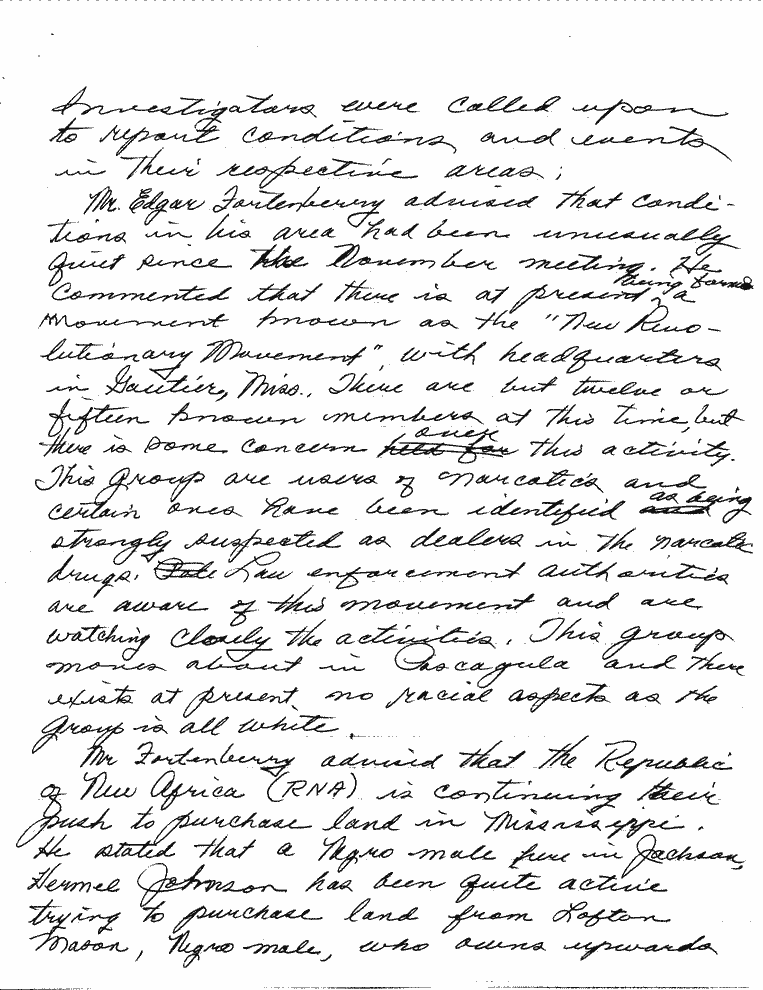 Investigators were called upon
to report conditions and events
in their respective areas;
Mr. Edgar Fortenberry advised that condi-
tions in his area had been unusually
quiet since the November meeting. He
commented that there is at present being formed a
movement known as the "New Revo-
lutionary Movement", with headquarters
in Gautier, Miss.. There are but twelve or
fifteen known members at this time, but
there is some concern held for over this activity.
This group are users of narcotics and
certain ones have been identified and as being
strongly suspected as dealers in the narcotic
drugs. Law enforcement authorities
are aware of this movement and are
watching closely the activities. This group
moves about in Pascagula and there
exists at present no racial aspects as the
group is all white.
Mr Fortenberry advised that the Republic
of New Africa (RNA) is continuing their
push to purchase land in Mississippi.
He stated that a Negro male here in Jackson,
Hermel Johnson has been quite active
trying to purchase land from Lofton
Mason, Negro male, who owns upwards